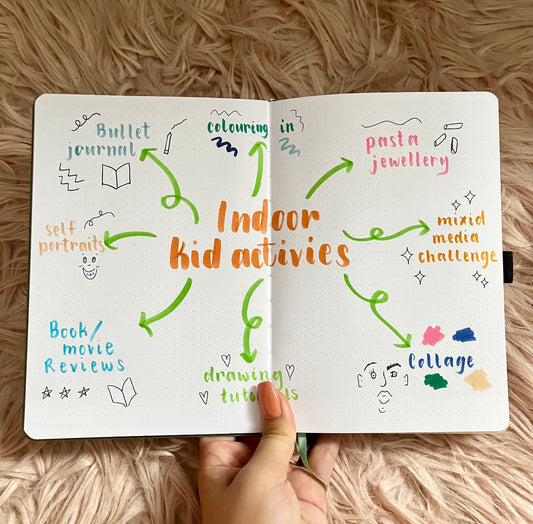 Indoor
kid activies
Bullet
journal
colouring in
pasta
jewellery
self
portraits
mixid
media
challenge
Book/
movie
Reviews
drawing
tutorials
Collage